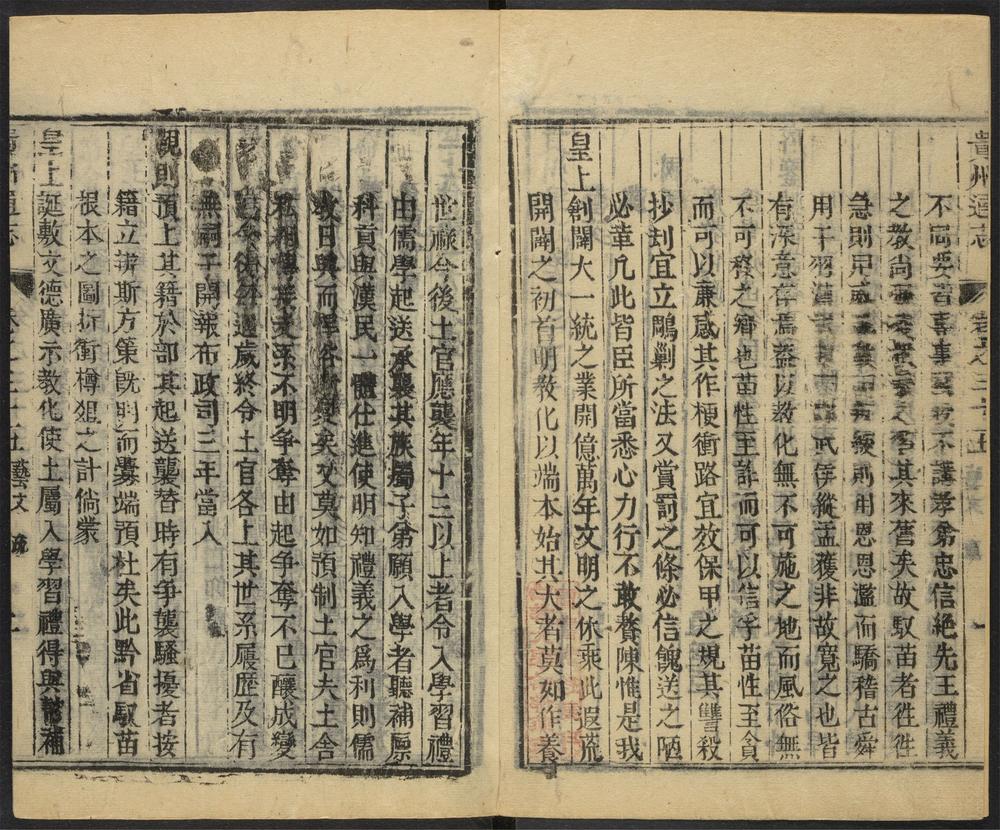 貴州通志
不同要害喜事不讓孝弟忠信絕先王禮義
之教尚其來舊矣故馭苗者徃徃
急則用威緩則用恩恩濫而驕稽古舜
用干羽孟獲非故寬之也皆
有深意存焉蓋以教化無不可施之地而風俗無
不可移之鄉也苗性至詐而可以信孚苗性至貪
而可以亷感其作梗衝路宜效保甲之規其讐殺
抄刦宜立鵰剿之法又賞罰之條必信餽送之陋
必革凡此皆臣所當悉心力行不敢贅陳惟是我
皇上創闢大一統之業開億萬年文明之休乘此遐荒
開闢之初首明教化以端本始其大者莫如作養
世祿令後土官應襲年十三以上者令入學習禮
由儒學起送承襲其族屬子弟願入學者聽補廪
科貢與漢民一體仕進使明知禮義之爲利則儒
教日興而悍俗漸變矣又莫如預制土官夫土舍
私相傳接支系不明爭奪由起爭奪不已釀成變
亂今後每遇歲終令土官各上其世系履歷及有
無嗣子開報布政司三年當入
覲則預上其籍於部其起送襲替時有爭襲騷擾者按
籍立辨斯方策旣明而釁端預杜矣此黔省馭苗
根本之圖折衝樽俎之計倘蒙
皇上誕敷文德廣示教化使土屬入學習禮得與補
藝文 疏